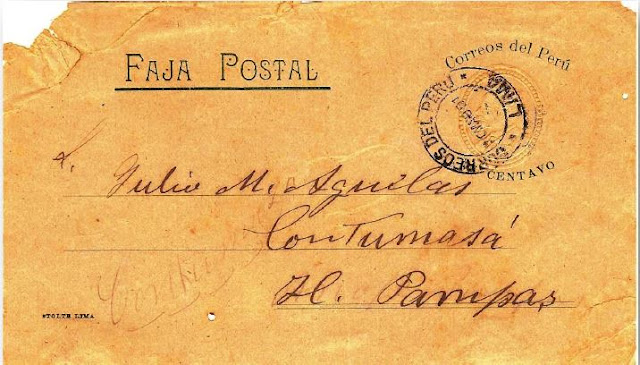 Correos del Perú
FAJA POSTAL
CORREOS DEL PERU * LIMA *
CENTAVO
Julio M. Aguilar
Contumasá
H. Pampas
STOLTE LIMA